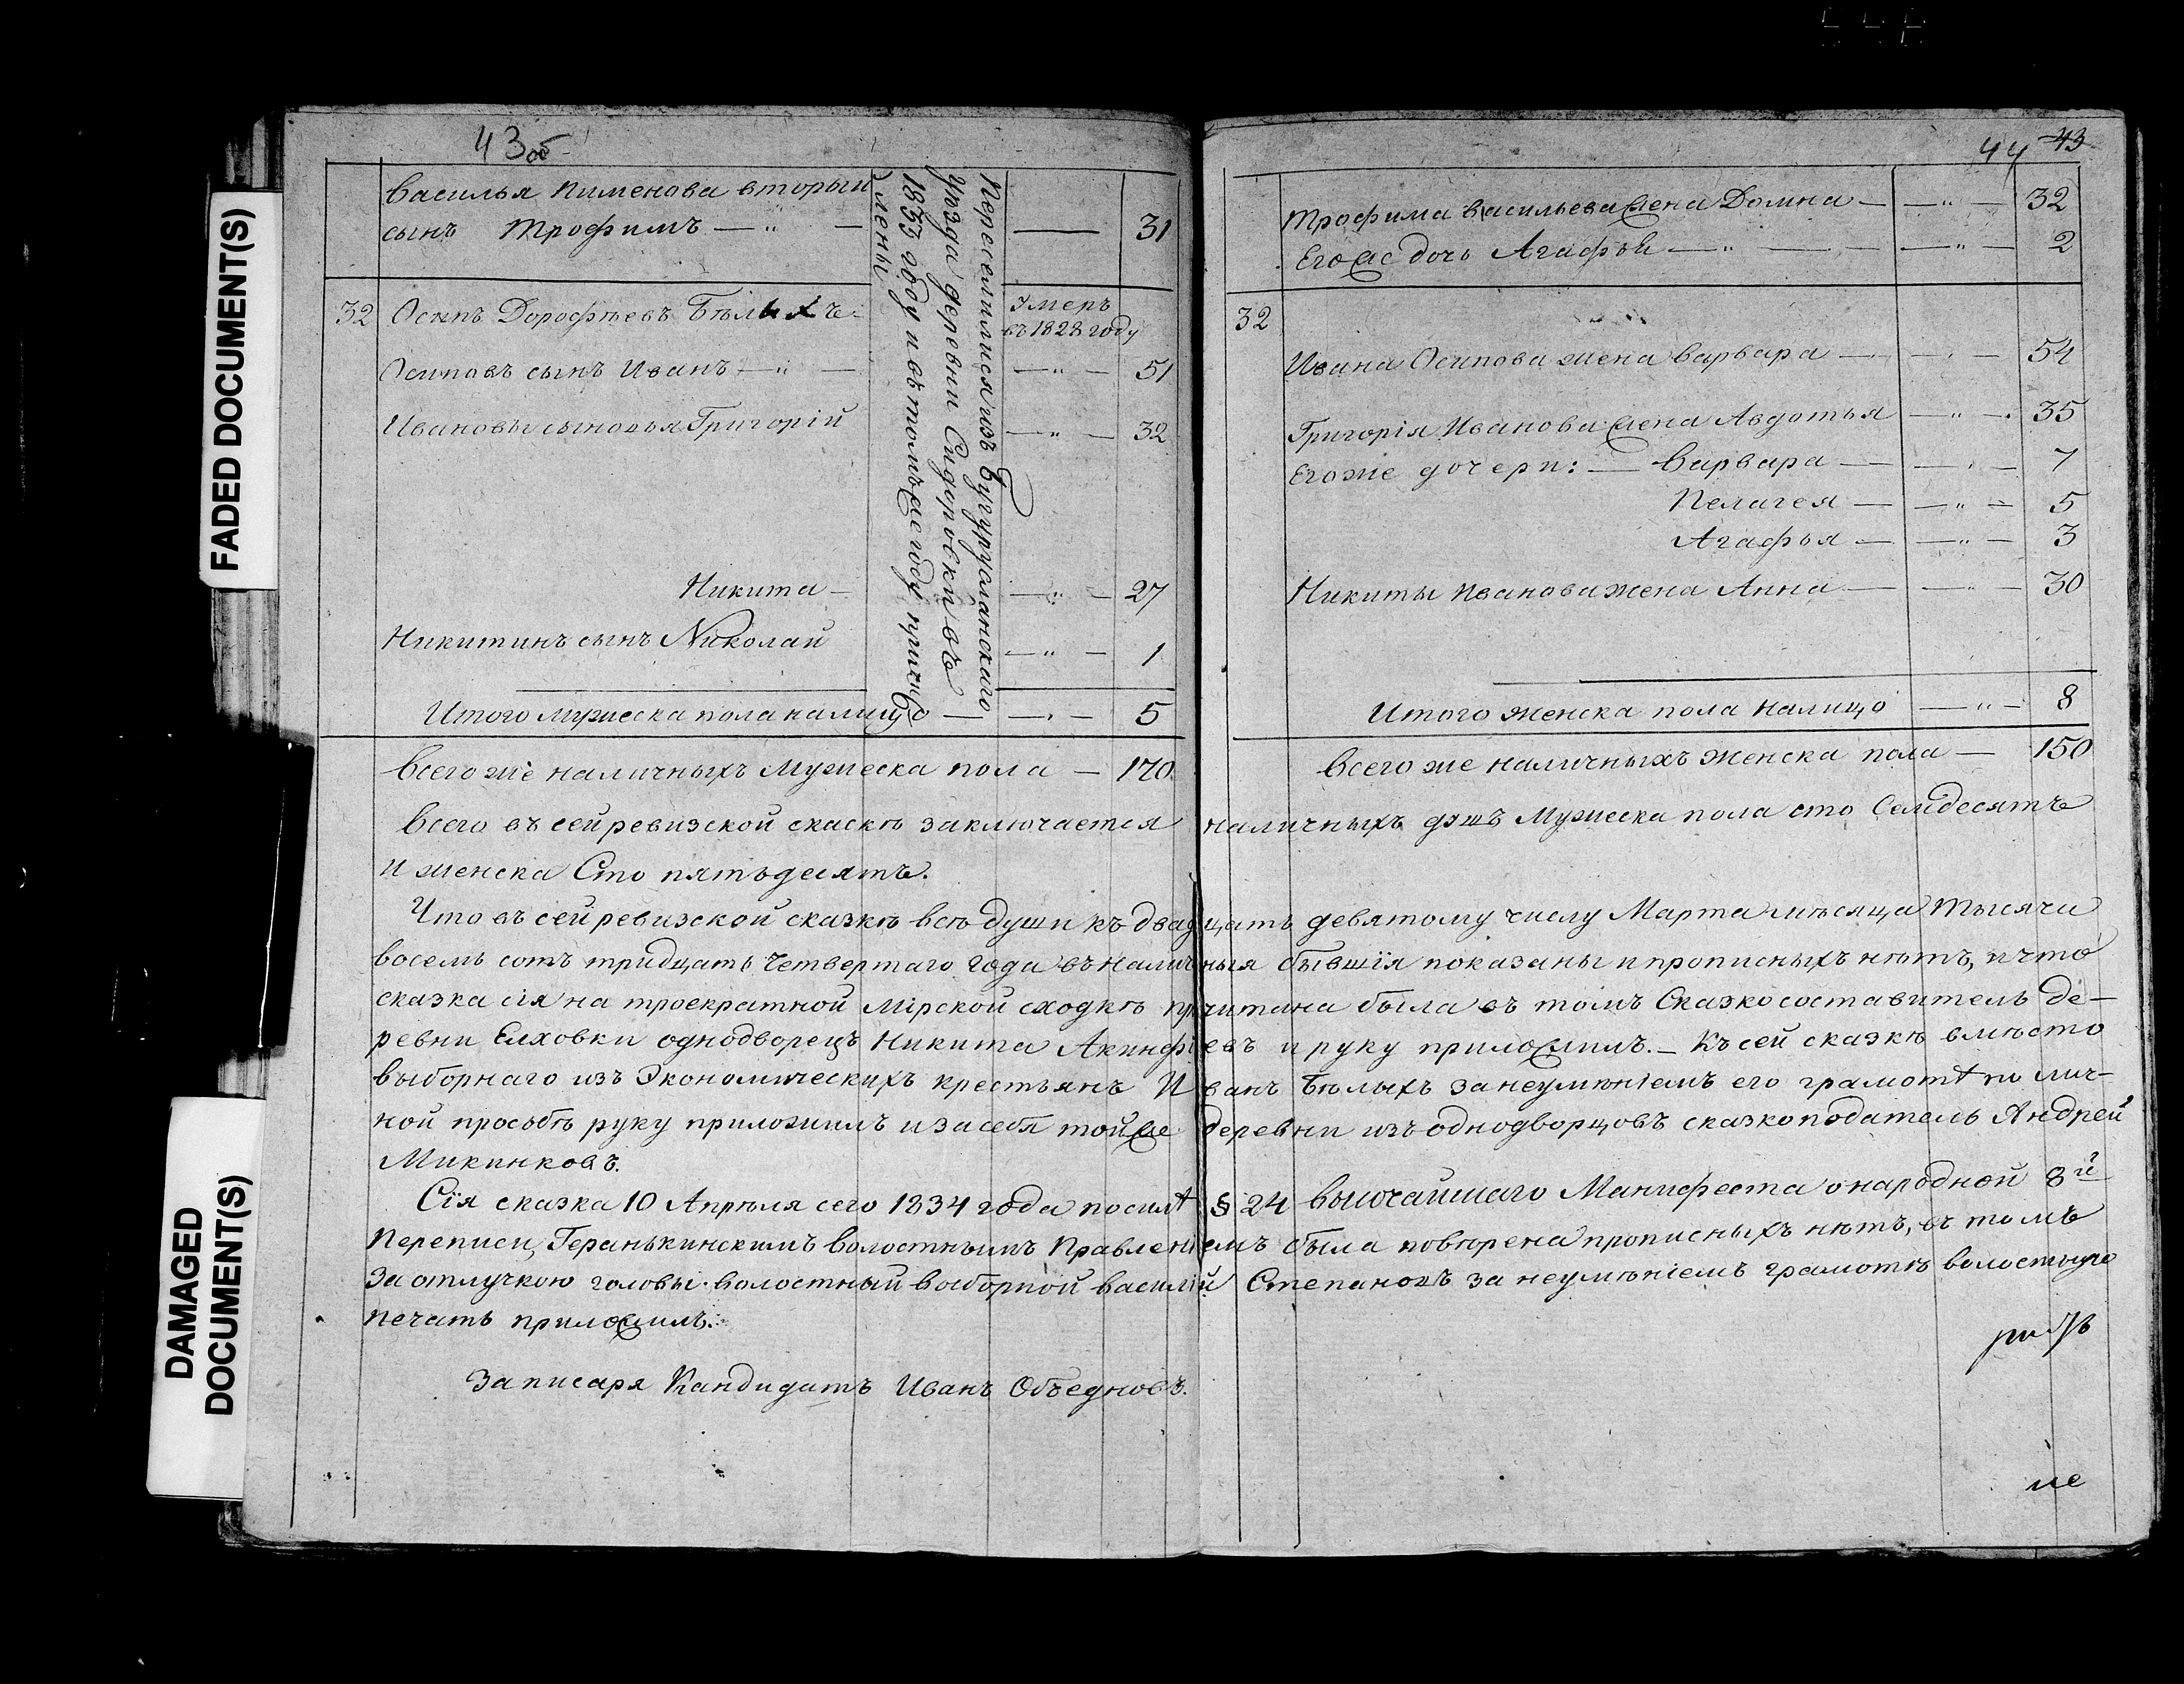 43об
Василья Пименова вторый
сынъ Трофимъ — 31
32 Осипъ Дорофѣевъ Бѣлыхъ Умеръ
въ 1828 году
Осиповъ сынъ Иванъ — " — 51
Ивановы сыновья Григорій — " — 32
Никита — " — 27
Никитинъ сынъ Николай — " — 1
Переселилися изъ Бугурусланскаго
уѣзда деревни Сидоровки въ
1833 году и въ томъ же году причи
слены
Итого мужеска пола налицо — " — 5
Всего же наличныхъ Мужеска пола — 170
44 43
Трофима Васильева жена Домна — " — 32
Его же дочь Агафья — " — 2
32
Ивана Осипова жена Варвара — " — 54
Григорія Иванова жена Авдотья — " — 35
Его же дочери: Варвара — " — 7
Пелагея — " — 5
Агафья — " — 3
Никиты Иванова жена Анна — " — 30
Итого женска пола налицо — " — 8
Всего же наличныхъ женска пола — 150
Всего въ сей ревизской скаскѣ заключается наличныхъ душъ Мужеска пола сто Семдесятъ
и женска Сто пятьдесятъ.
Что въ сей ревизской сказкѣ всѣ души къ двадцать девятому числу Марта мѣсяца тысячи
восемь сотъ тридцать четвертаго года въ наличныя бывшія показаны и прописныхъ нѣтъ, и что
сказка сія на троекратной мірской сходкѣ причитана была въ томъ Сказкосоставитель де-
ревни Елховки однодворецъ Никита Акинфіевъ и руку приложилъ. — Къ сей сказкѣ вмѣсто
выборнаго изъ Экономическихъ крестьянъ Иванъ Бѣлыхъ за неумѣніемъ его грамотѣ по лич-
ной просьбѣ руку приложилъ и за себя той же деревни изъ однодворцовъ сказкоподатель Андрей
Микинковъ.
Сія сказка 10 Апрѣля сего 1834 года по силѣ § 24 высочайшаго Манифеста о народной 8й
Переписи, Геранькинскимъ Волостнымъ Правленіемъ была поверена прописныхъ нѣтъ, въ томъ
За отлучкою головы волостный выборной Василій Степановъ за неумѣніемъ грамотѣ волостную
печать приложилъ.
За писаря Кандидатъ Иванъ Объедновъ.